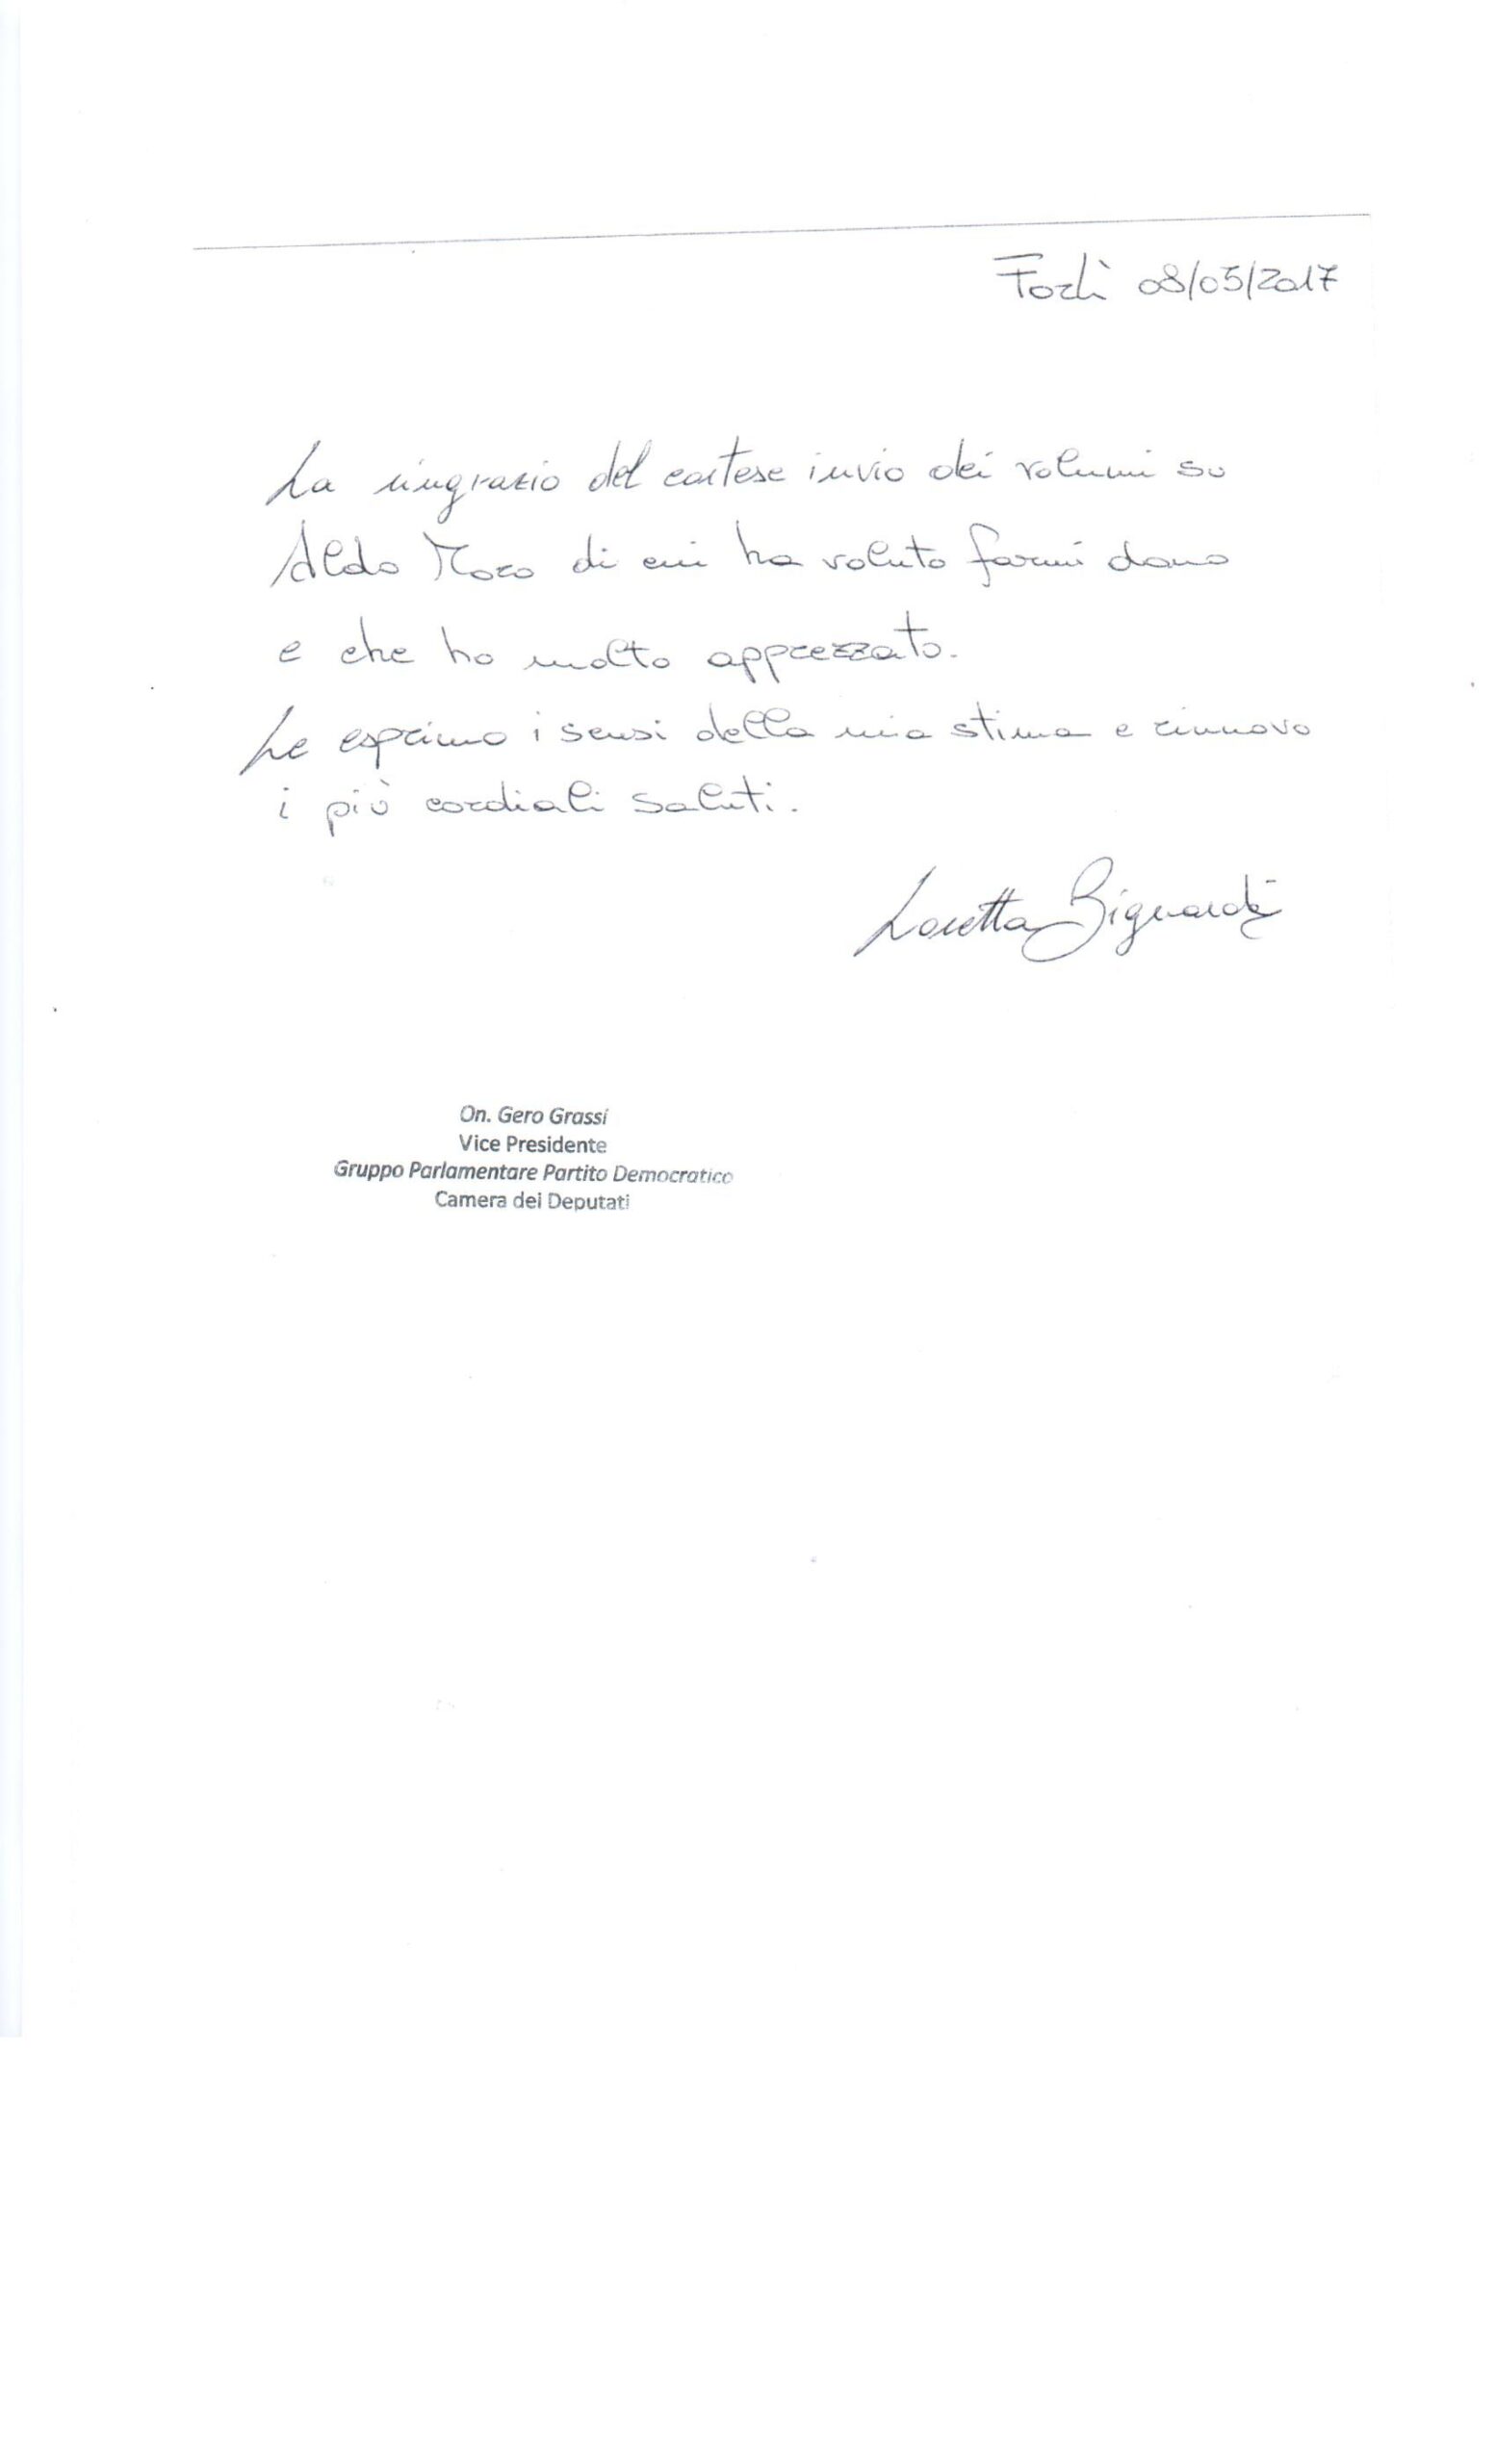 Forlì 08/05/2017
La ringrazio del cortese invio dei volumi su
Aldo Moro di cui ha voluto farmi dono
e che ho molto apprezzato.
Le esprimo i sensi della mia stima e rinnovo
i più cordiali saluti.
Loretta Bignardi
On. Gero Grassi
Vice Presidente
Gruppo Parlamentare Partito Democratico
Camera dei Deputati